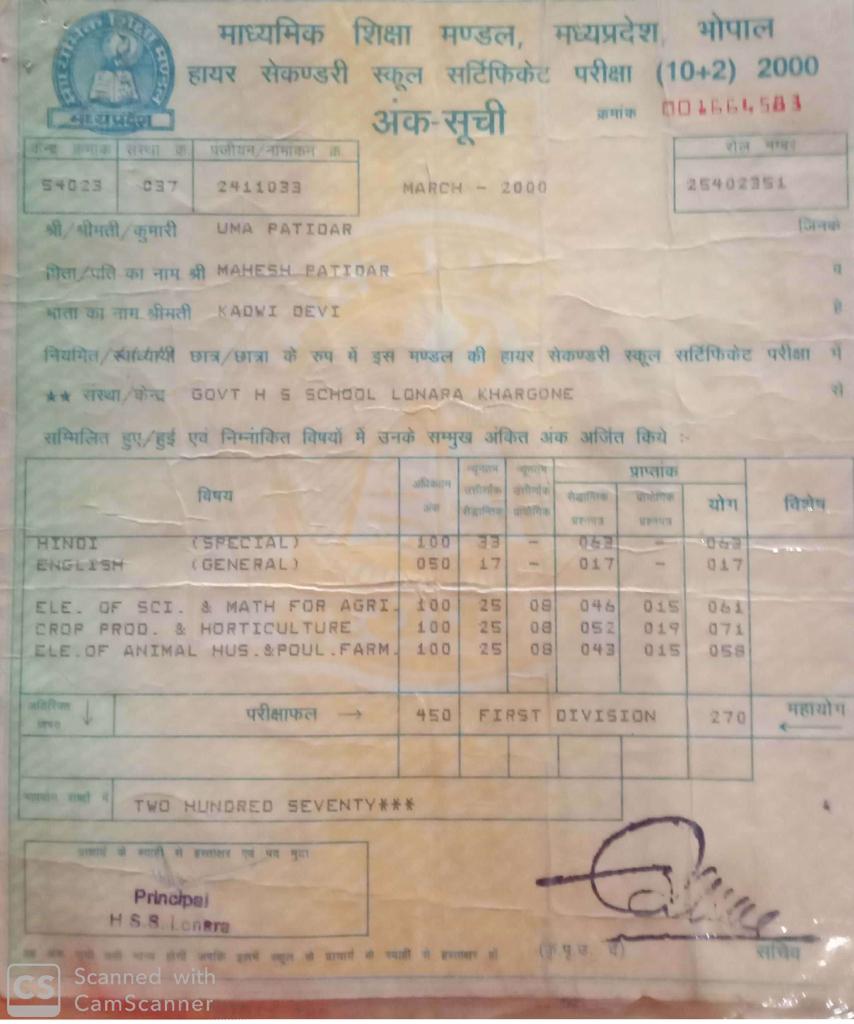 माध्यमिक शिक्षा मण्डल, मध्यप्रदेश, भोपाल
हायर सेकण्डरी स्कूल सर्टिफिकेट परीक्षा (10+2) 2000
मध्यप्रदेश
अंक-सूची क्रमांक 001664583
केन्द्र क्रमांक संस्था क्र. पंजीयन/नामांकन क्र. रोल नम्बर
54023 037 2411033 MARCH - 2000 25402351
श्री/श्रीमती/कुमारी UMA PATIDAR जिनके
पिता/पति का नाम श्री MAHESH PATIDAR व
माता का नाम श्रीमती KADWI DEVI है
नियमित/स्वाध्यायी छात्र/छात्रा के रुप में इस मण्डल की हायर सेकण्डरी स्कूल सर्टिफिकेट परीक्षा में
** संस्था/केन्द्र GOVT H S SCHOOL LONARA KHARGONE से
सम्मिलित हुए/हुई एवं निम्नांकित विषयों में उनके सम्मुख अंकित अंक अर्जित किये :-
विषय अधिकतम अंक न्यूनतम उत्तीर्णांक सैद्धान्तिक न्यूनतम उत्तीर्णांक प्रायोगिक प्राप्तांक विशेष
सैद्धान्तिक प्रश्नपत्र प्रायोगिक प्रश्नपत्र योग
HINDI (SPECIAL) 100 33 - 063 - 063
ENGLISH (GENERAL) 050 17 - 017 - 017
ELE. OF SCI. & MATH FOR AGRI. 100 25 08 046 015 061
CROP PROD. & HORTICULTURE 100 25 08 052 019 071
ELE.OF ANIMAL HUS.&POUL.FARM. 100 25 08 043 015 058
अतिरिक्त विषय ↓ परीक्षाफल → 450 FIRST DIVISION 270 महायोग ←
TWO HUNDRED SEVENTY***
प्राचार्य के स्याही से हस्ताक्षर एवं पद मुद्रा
Principal
H S.S. Lonara
सचिव
CS Scanned with
CamScanner